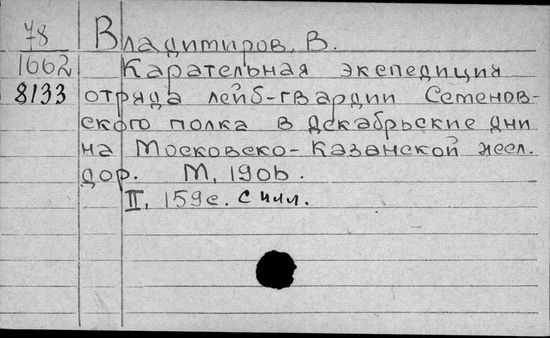 78 Владимиров, В.
1662 Карательная экспедиция
8133 отряда лейб-гвардии Семенов-
ского полка в декабрьские дни
на Московско-Казанской жел.
дор. М, 1906.
II, 159с. с илл.